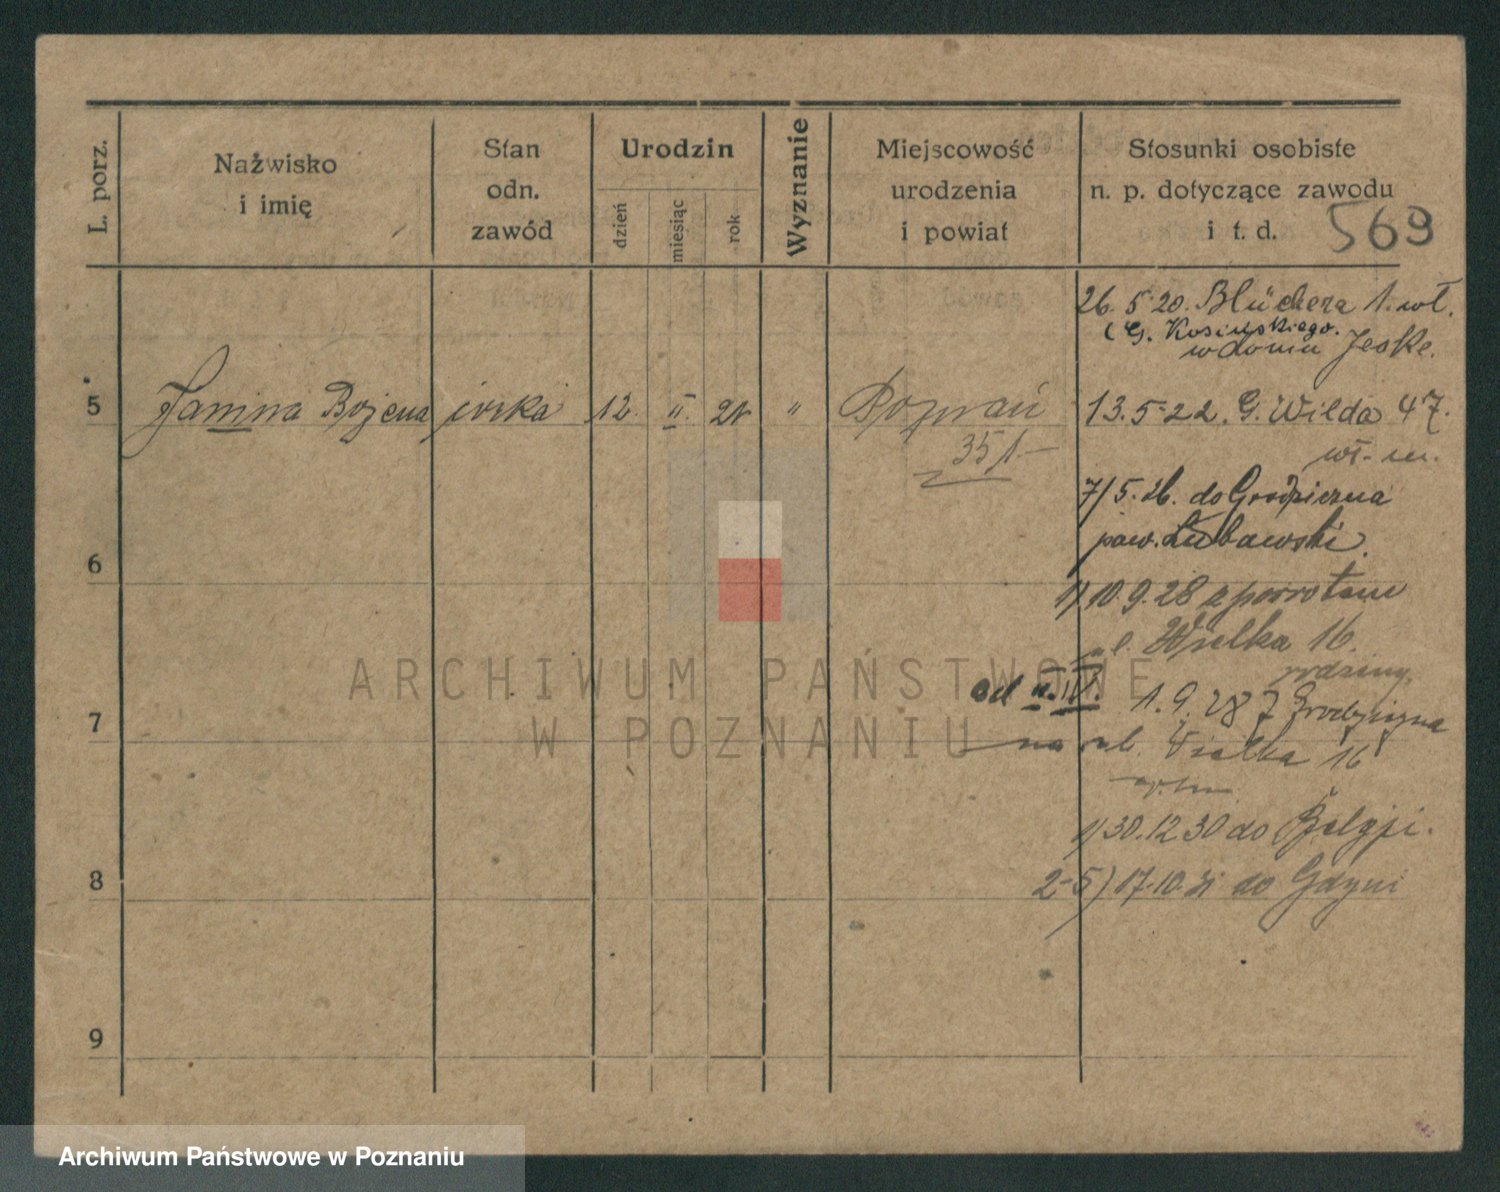 L. porz.
Nazwisko
i imię
Stan
odn.
zawód
Urodzin
dzień
miesiąc
rok
Wyznanie
Miejscowość
urodzenia
i powiat
Stosunki osobiste
n. p. dotyczące zawodu
i t. d.
569
26. 5. 20. Blüchera 1. wł.
(G. Kosińskiego.
w domu Jeske.
5
Janina Bojena
córka
12.
II.
21
"
Poznań
13. 5. 22. G. Wilda 47.
wł. m.
351
7/5. 26. do Grodziczna
pow. Lubawski.
6
1) 10. 9. 28 z powrotem
ul. Wielka 16.
rodziny
od II. IV. 1. 9. 28 z Grodziczna
7
na ul. Wielka 16
1) 30. 12 30 do Belgji.
8
2-5) 17. 10. 31 do Gdyni
9
ARCHIWUM PAŃSTWOWE
W POZNANIU
Archiwum Państwowe w Poznaniu